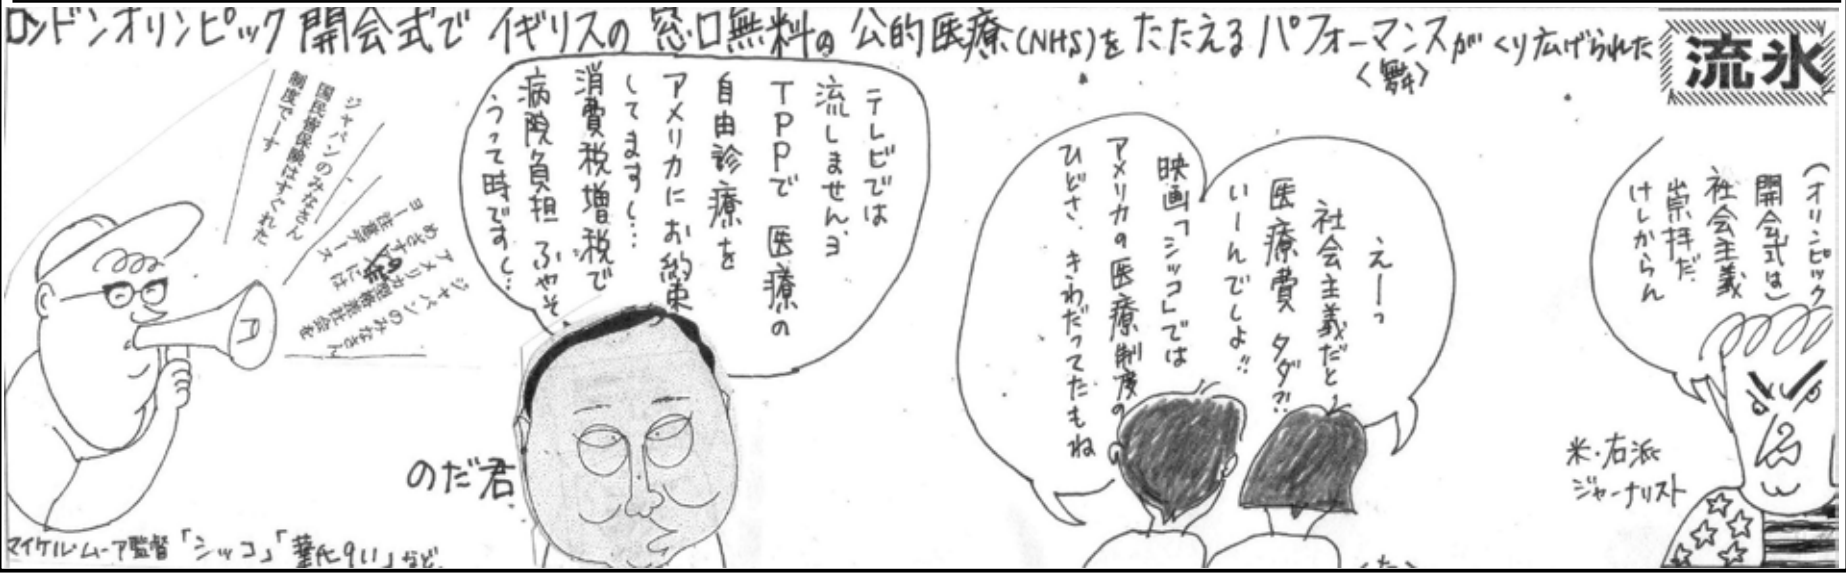 ロンドンオリンピック開会式でイギリスの窓口無料の公的医療(NHS)をたたえるパフォーマンスがくり広げられた
〈舞〉
流氷
(オリンピック
開会式は)
社会主義
崇拝だ
けしからん
米・右派
ジャーナリスト
えーっ
社会主義だと
医療費 タダ?!
いーんでしょ!!
映画「シッコ」では
アメリカの医療制度の
ひどさ、きわだってたもね
テレビでは
流しません、ヨ
TPPで 医療の
自由診療を
アメリカにお約束
してますし…
消費税増税で
病院負担 ふやそ
うって時ですし…
のだ君
ジャパンのみなさん
国民皆保険はすぐれた
制度でーす
ジャパンのみなさん
めざすには
ヨー注意デース
マイケル・ムーア監督「シッコ」「華氏911」など